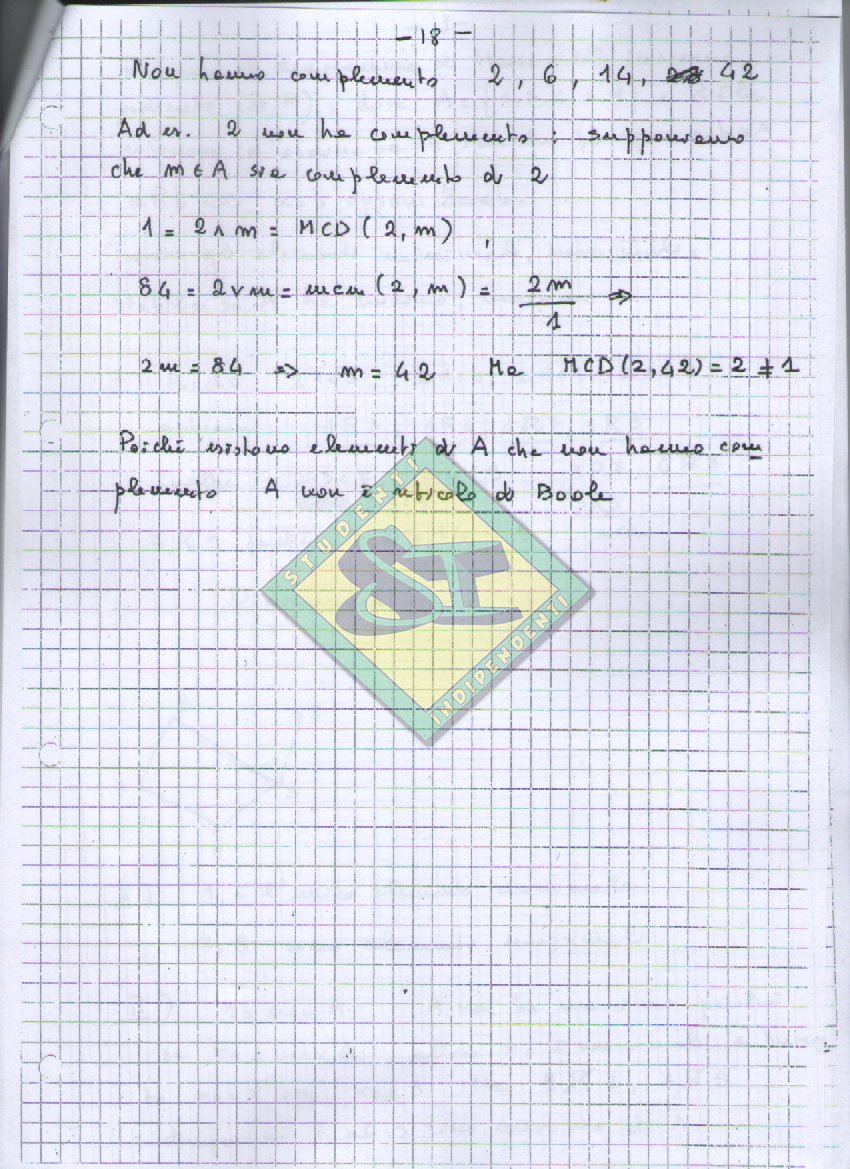 - 18 -
Non hanno complemento 2, 6, 14, 42
Ad es. 2 non ha complemento : supponiamo
che m ∈ A sia complemento di 2
1 = 2 ∧ m = MCD ( 2, m ) ,
84 = 2 ∨ m = mcm ( 2, m ) = 2m / 1 ⇒
2m = 84 ⇒ m = 42 Ma MCD (2, 42) = 2 ≠ 1
Poiché esistono elementi di A che non hanno com
plemento A non è reticolo di Boole
STUDENTI
SI
INDIPENDENTI